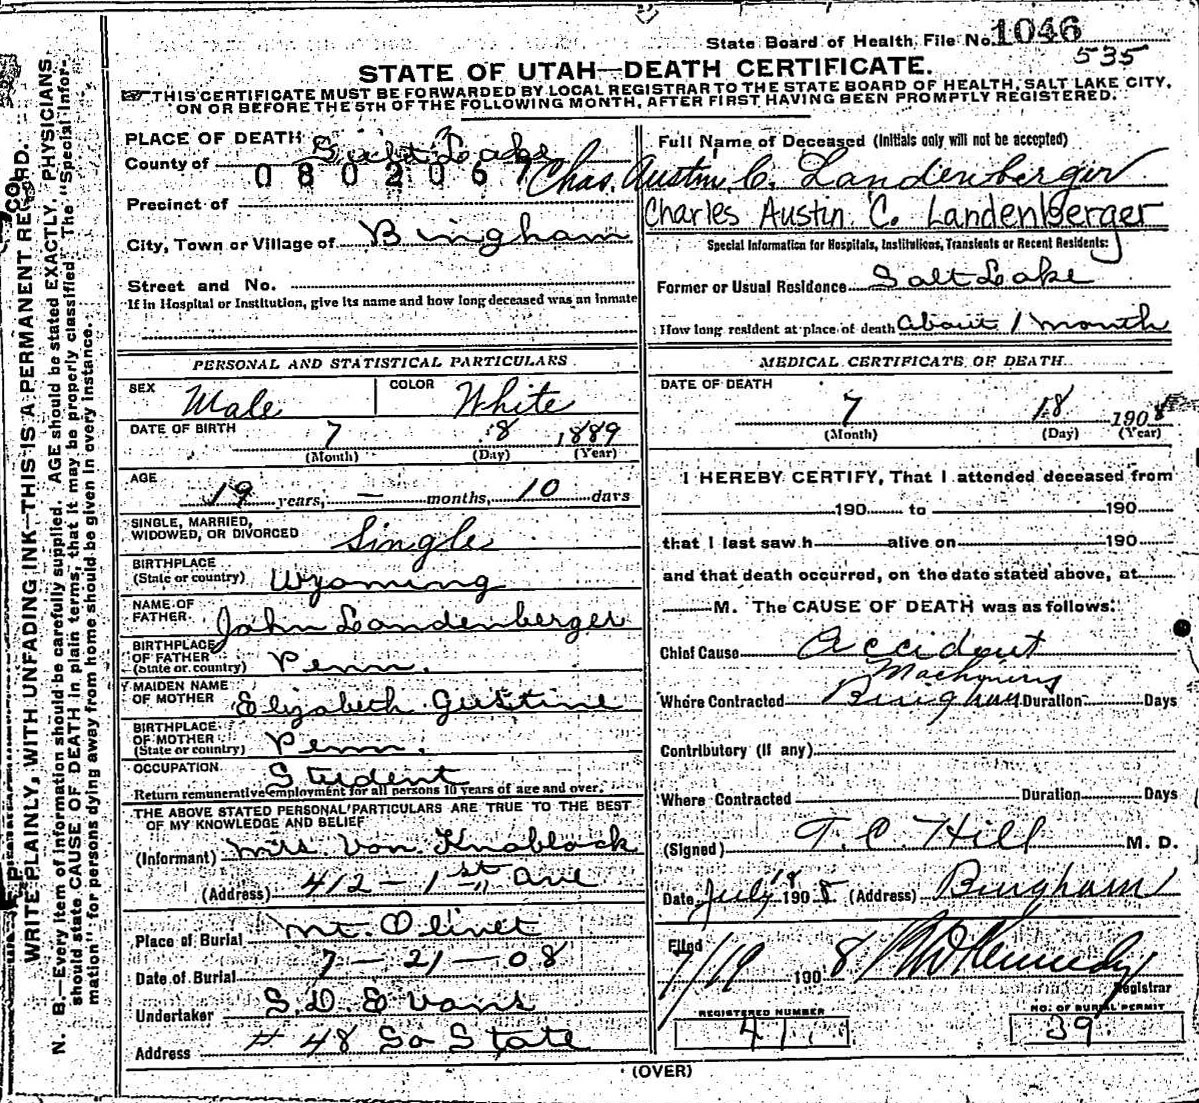 State Board of Health File No. 1046
535
STATE OF UTAH—DEATH CERTIFICATE.
THIS CERTIFICATE MUST BE FORWARDED BY LOCAL REGISTRAR TO THE STATE BOARD OF HEALTH, SALT LAKE CITY,
ON OR BEFORE THE 5TH OF THE FOLLOWING MONTH, AFTER FIRST HAVING BEEN PROMPTLY REGISTERED.
WRITE PLAINLY, WITH UNFADING INK—THIS IS A PERMANENT RECORD.
N. B.—Every item of information should be carefully supplied. AGE should be stated EXACTLY. PHYSICIANS
should state CAUSE OF DEATH in plain terms, that it may be properly classified. The "Special Infor-
mation" for persons dying away from home should be given in every instance.
PLACE OF DEATH
County of Salt Lake
0802067
Precinct of
City, Town or Village of Bingham
Street and No.
If in Hospital or Institution, give its name and how long deceased was an inmate
Full Name of Deceased (Initials only will not be accepted)
Chas. Austin C. Landenberger
Charles Austin C. Landenberger
Special Information for Hospitals, Institutions, Transients or Recent Residents:
Former or Usual Residence Salt Lake
How long resident at place of death about 1 month
PERSONAL AND STATISTICAL PARTICULARS
SEX Male COLOR White
DATE OF BIRTH 7 8 1889
(Month) (Day) (Year)
AGE 19 years, — months, 10 days
SINGLE, MARRIED,
WIDOWED, OR DIVORCED Single
BIRTHPLACE
(State or country) Wyoming
NAME OF
FATHER John Landenberger
BIRTHPLACE
OF FATHER
(State or country) Penn.
MAIDEN NAME
OF MOTHER Elizabeth Gustine
BIRTHPLACE
OF MOTHER
(State or country) Penn.
OCCUPATION Student
Return remunerative employment for all persons 10 years of age and over.
THE ABOVE STATED PERSONAL PARTICULARS ARE TRUE TO THE BEST
OF MY KNOWLEDGE AND BELIEF
(Informant) Mrs. Von Knoblock
(Address) 412 - 1st Ave
Place of Burial Mt. Olivet
Date of Burial 7 - 21 - 08
Undertaker S.D. Evans
Address # 48 So State
MEDICAL CERTIFICATE OF DEATH
DATE OF DEATH
7 18 1908
(Month) (Day) (Year)
I HEREBY CERTIFY, That I attended deceased from
190 to 190
that I last saw h alive on 190
and that death occurred, on the date stated above, at
M. The CAUSE OF DEATH was as follows:
Chief Cause Accident
Machinery
Where Contracted Bingham Duration Days
Contributory (If any)
Where Contracted Duration Days
(Signed) T. C. Hill M. D.
Date July 18 1908 (Address) Bingham
Filed 7/19 1908 Kennedy
Registrar
REGISTERED NUMBER
41
NO. OF BURIAL PERMIT
39
(OVER)